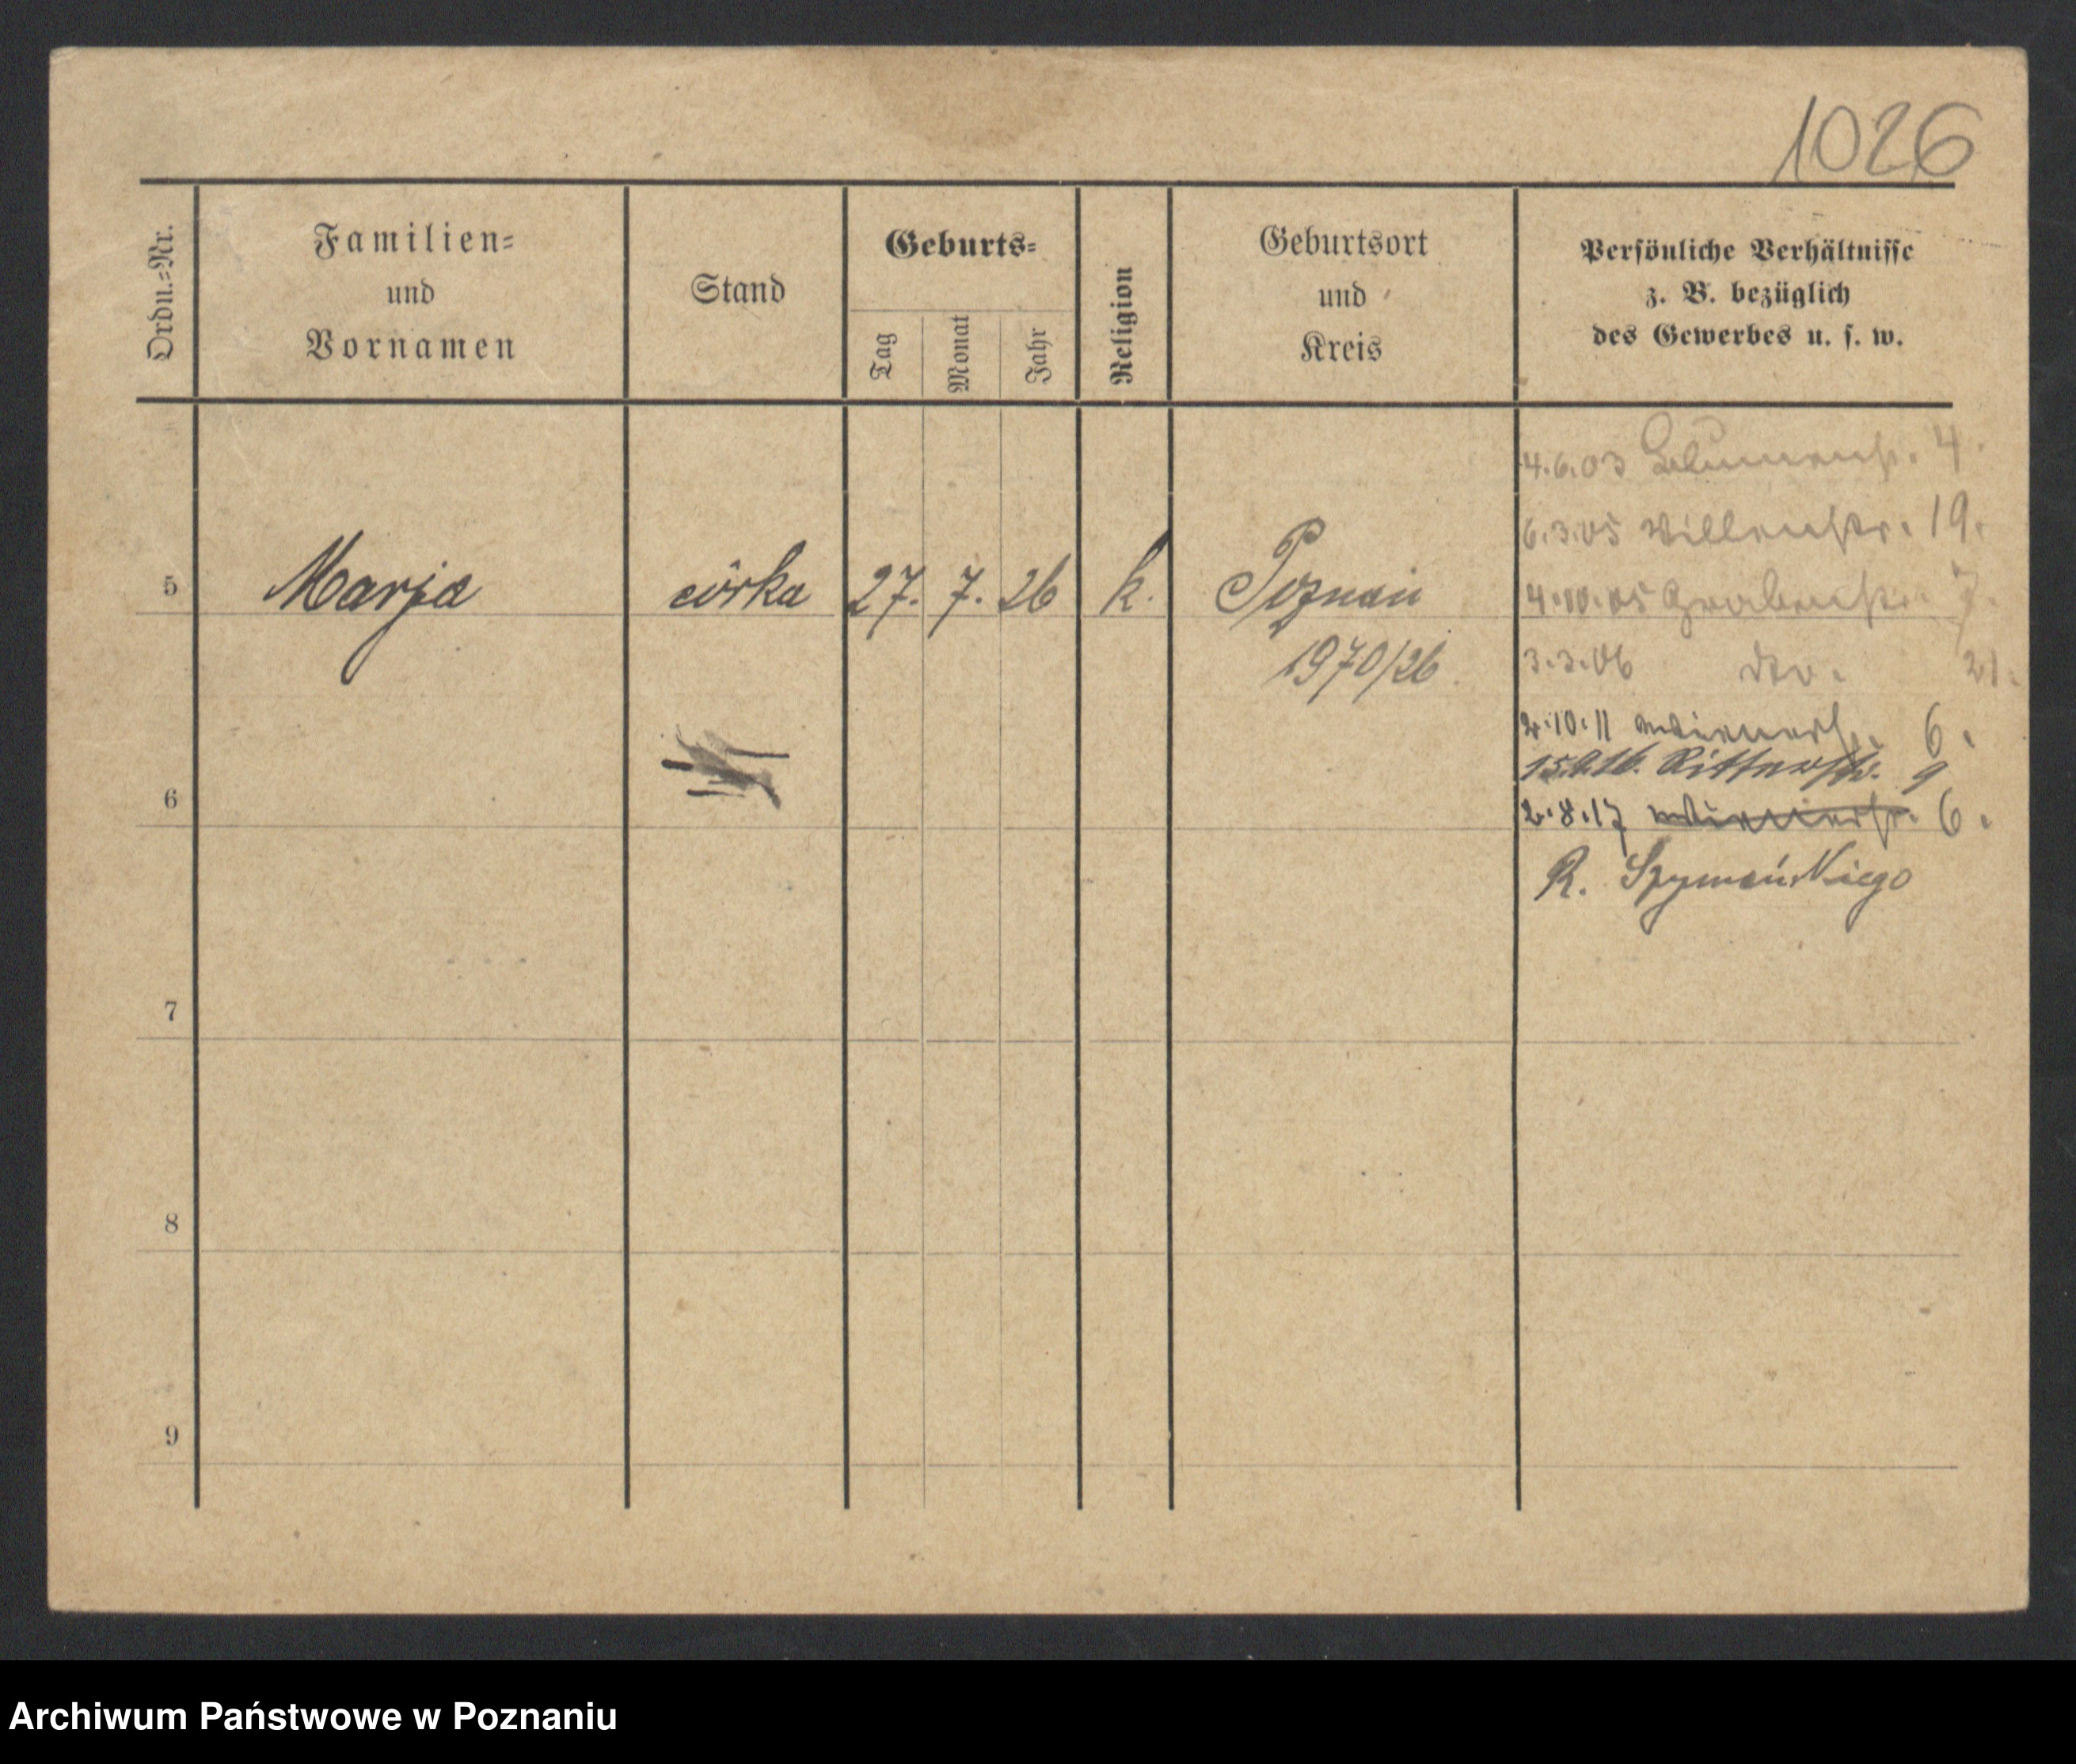 1026
Ordn.=Nr.
Familien=
und
Vornamen
Stand
Geburts=
Tag
Monat
Jahr
Religion
Geburtsort
und
Kreis
Persönliche Verhältnisse
z. B. bezüglich
des Gewerbes u. s. w.
4.6.03 Blumenstr. 4.
6.3.05 Villenstr. 19.
5 Marja córka 27. 7. 26 k. Poznań
4.10.05 Grabenstr. 7.
1970/26.
3.3.06 dto. 21.
2.10.11 Wienerstr. 6.
15.6.16. Ritterstr. 9
6
2.8.17 Wienerstr. 6.
R. Szymańskiego
7
8
9
Archiwum Państwowe w Poznaniu